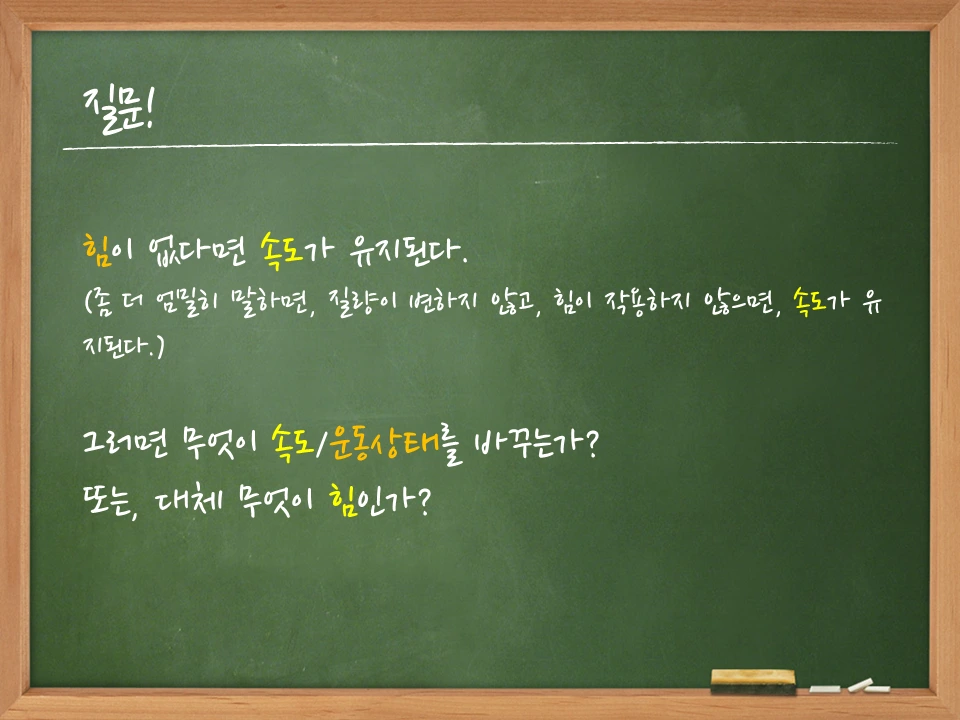 질문!
힘이 없다면 속도가 유지된다.
(좀 더 엄밀히 말하면, 질량이 변하지 않고, 힘이 작용하지 않으면, 속도가 유
지된다.)
그러면 무엇이 속도/운동상태를 바꾸는가?
또는, 대체 무엇이 힘인가?